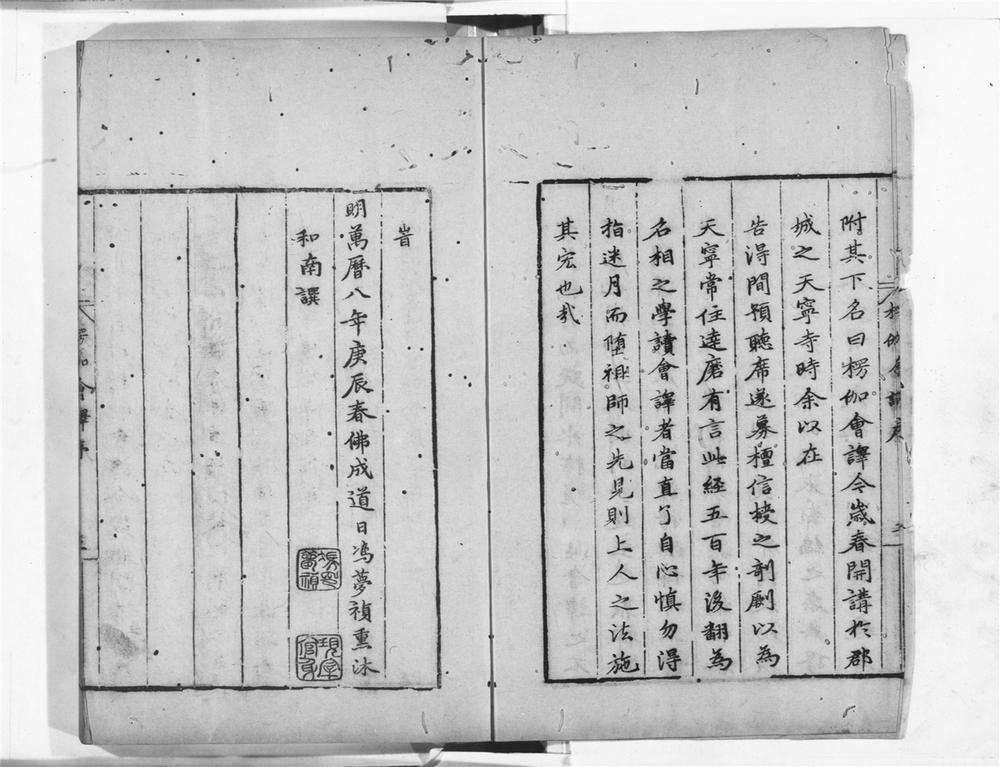 附其下名曰楞伽會譯今歲春開講於郡
城之天寧寺時余以在
告得間預聽席遂募檀信授之剞劂以為
天寧常住達磨有言此經五百年後翻為
名相之學讀會譯者當直了自心慎勿得
指迷月而墮祖師之先見則上人之法施
其宏也哉
旹
明萬曆八年庚辰春佛成道日馮夢禎熏沐
和南譔
馮夢禎